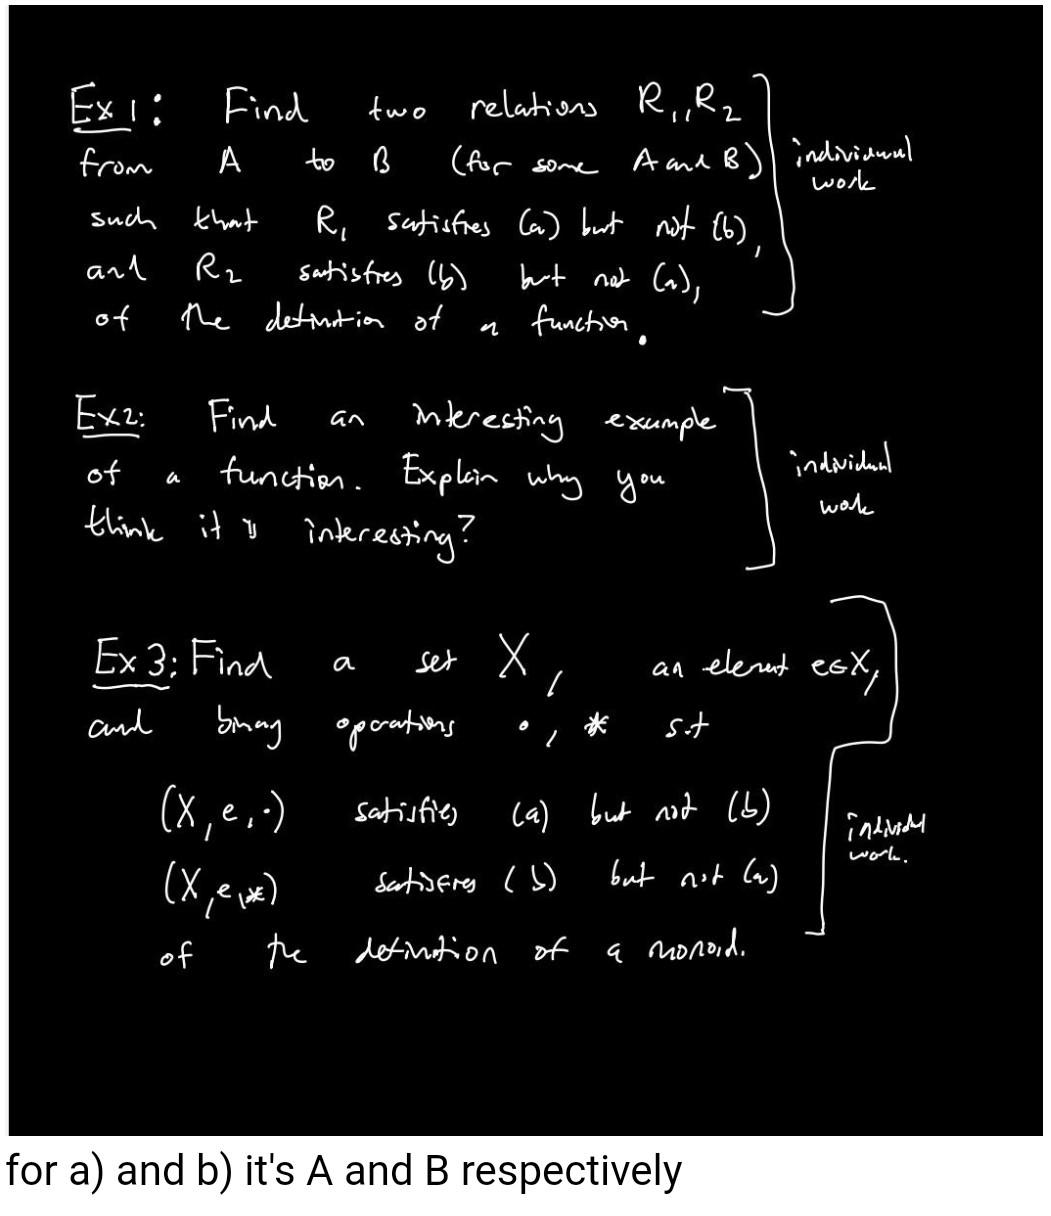 Ex 1: Find two relations R₁, R₂
from A to B (for some A and B)
such that R₁ satisfies (a) but not (b),
and R₂ satisfies (b) but not (a),
of the definition of a function.
individual
work
Ex2: Find an interesting example
of a function. Explain why you
think it is interesting?
individual
work
Ex 3: Find a set X, an element e∈X,
and binary operations •, * s.t
(X, e, ·) satisfies (a) but not (b)
(X, e, *) satisfies (b) but not (a)
of the definition of a monoid.
individual
work.
for a) and b) it's A and B respectively